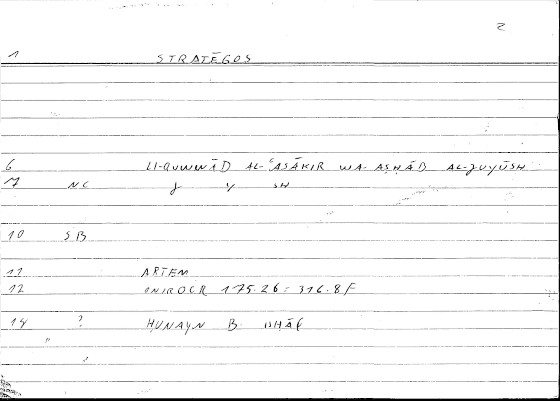 2
1 STRATĒGOS
6 LI-QUWWĀD AL-ʿASĀKIR WA-AṢḤĀB AL-JUYŪSH
7 NC J Y SH
10 SB
11 ARTEM
12 ONIROCR 175.26 = 316.8 F
14 ? ḤUNAYN B.